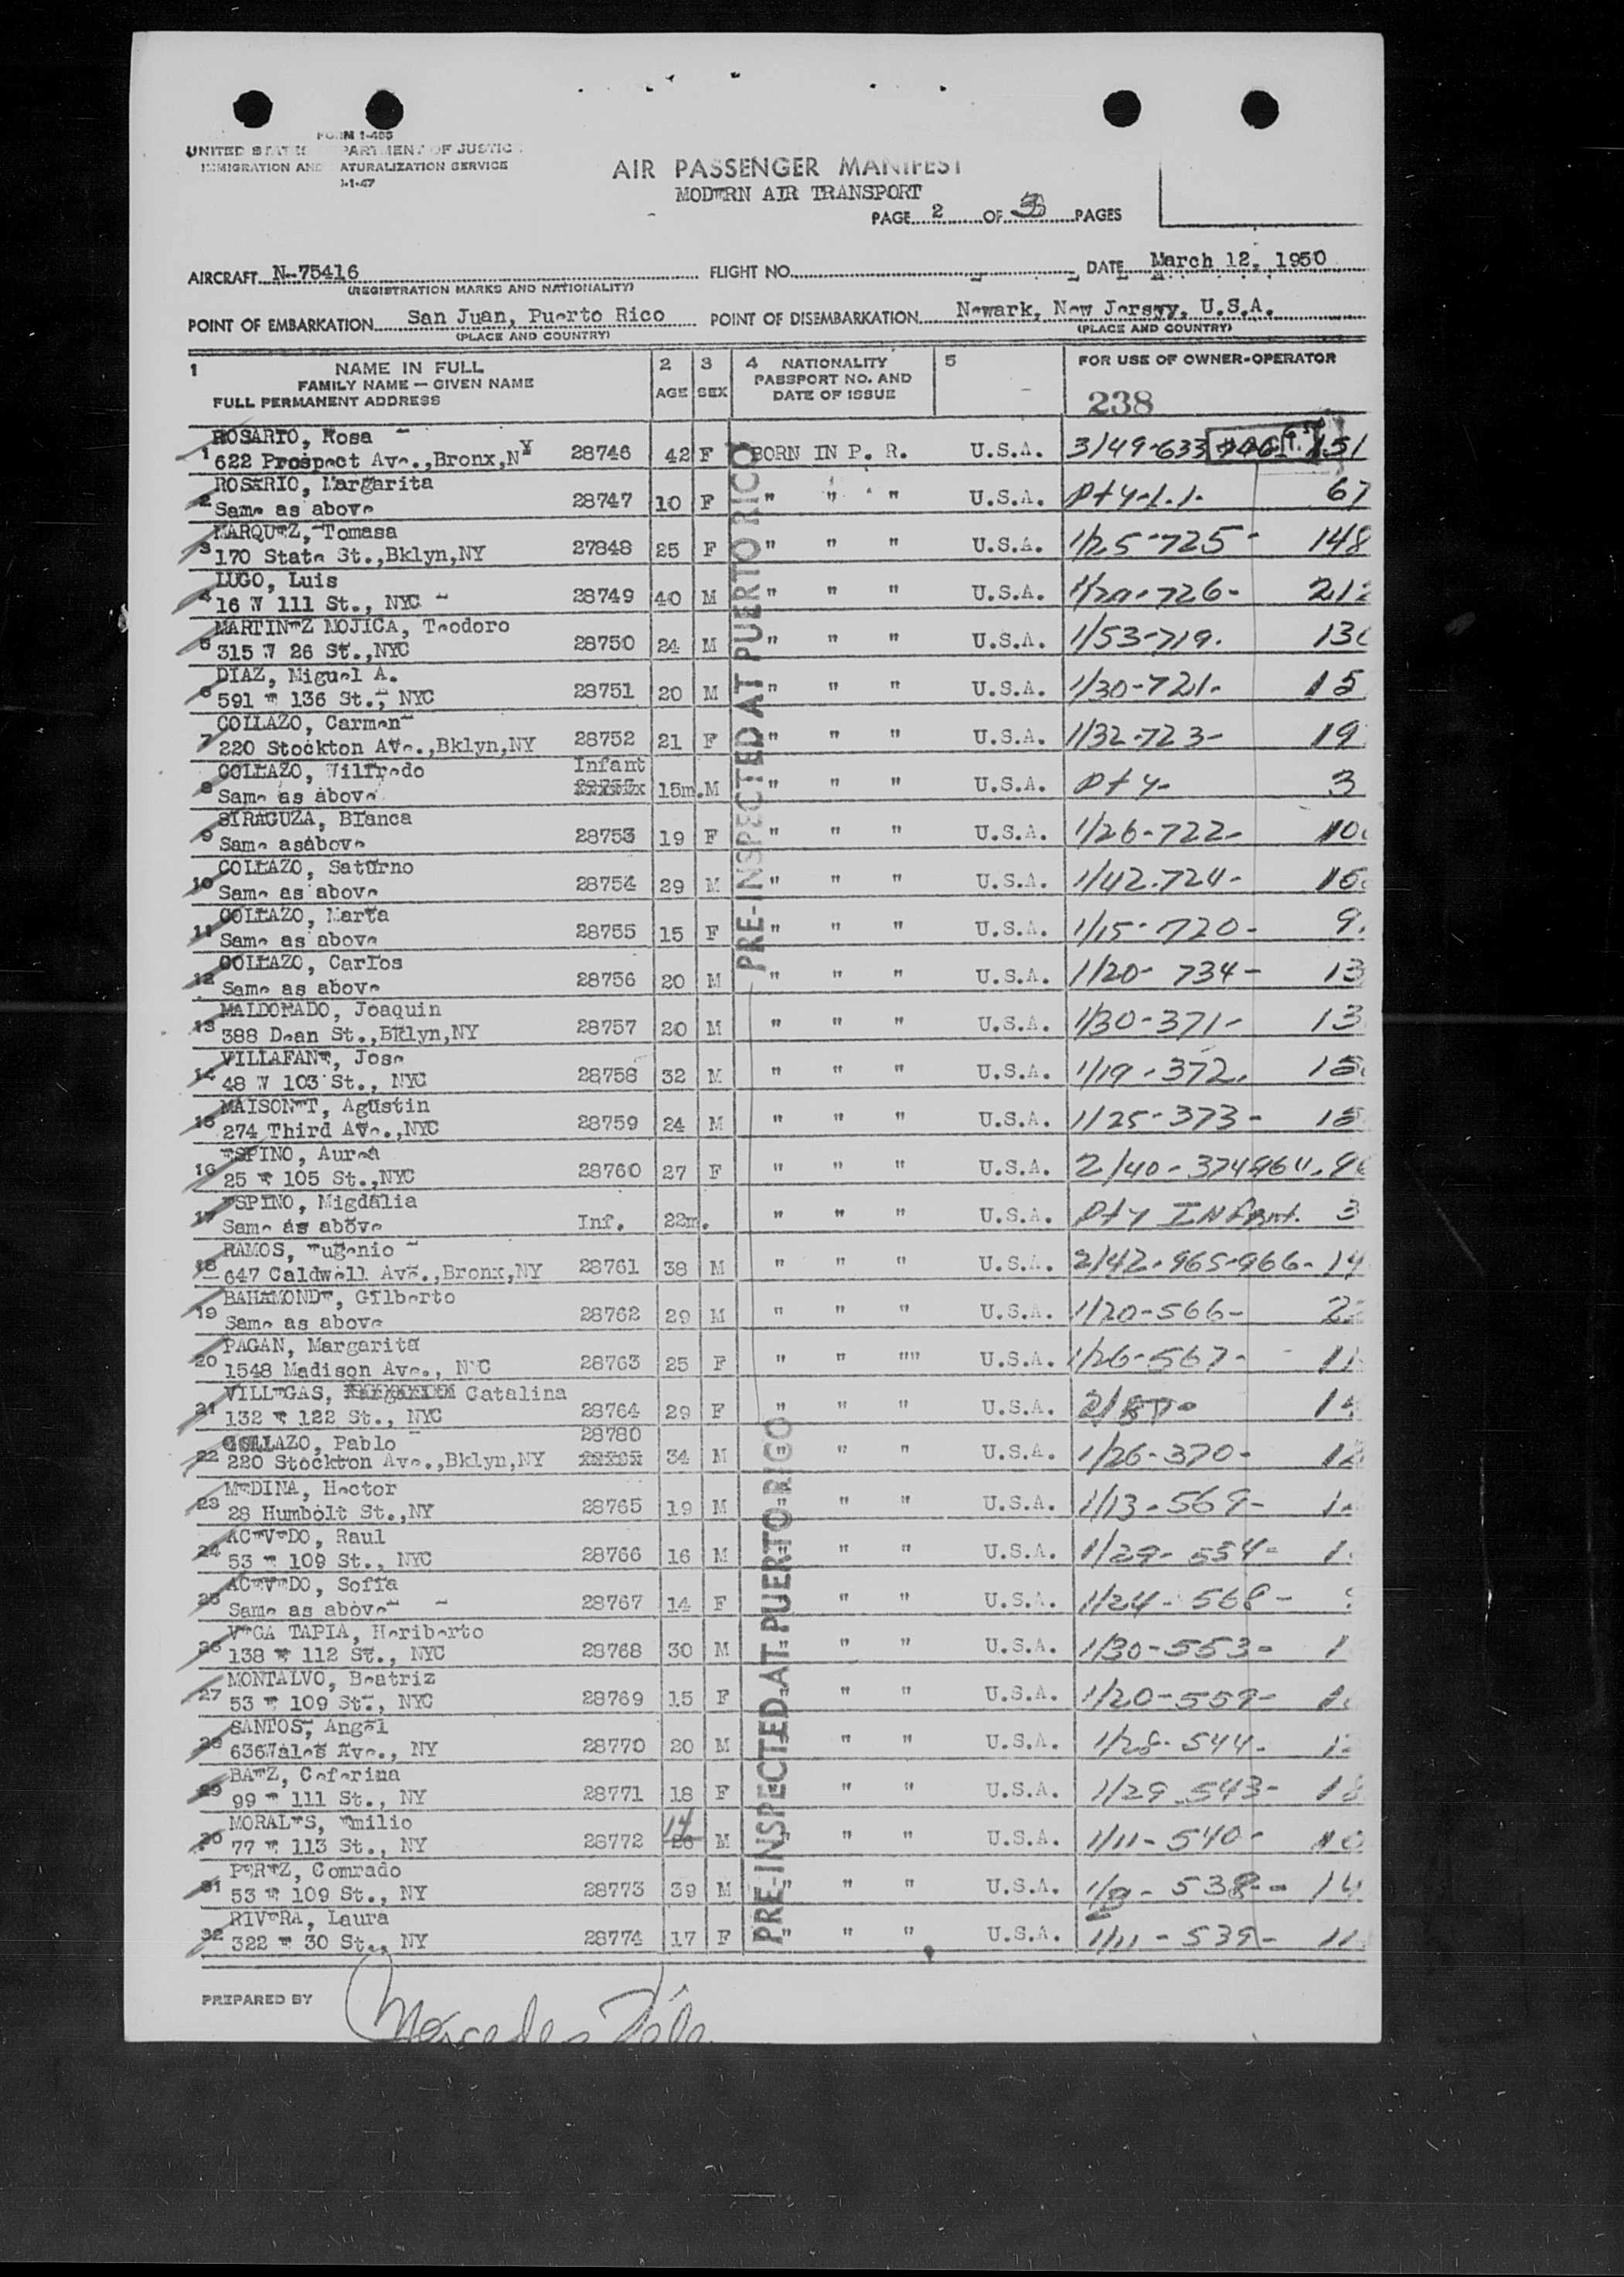 FORM I-466
UNITED STATES DEPARTMENT OF JUSTICE
IMMIGRATION AND NATURALIZATION SERVICE
1-1-47
AIR PASSENGER MANIFEST
MODERN AIR TRANSPORT
PAGE 2 OF 3 PAGES
AIRCRAFT N-75416 FLIGHT NO. DATE March 12, 1950
(REGISTRATION MARKS AND NATIONALITY)
POINT OF EMBARKATION San Juan, Puerto Rico POINT OF DISEMBARKATION Newark, New Jersey, U.S.A.
(PLACE AND COUNTRY) (PLACE AND COUNTRY)
1 NAME IN FULL 2 3 4 NATIONALITY 5 FOR USE OF OWNER-OPERATOR
FAMILY NAME — GIVEN NAME AGE SEX PASSPORT NO. AND
FULL PERMANENT ADDRESS DATE OF ISSUE 238
PRE-INSPECTED AT PUERTO RICO
ROSARIO, Rosa
1 622 Prospect Ave.,Bronx,NY 28746 42 F BORN IN P. R. U.S.A. 3/49-633 151
ROSARIO, Margarita
2 Same as above 28747 10 F " " " U.S.A. Pty 67
MARQUEZ, Tomasa
3 170 State St.,Bklyn,NY 27848 25 F " " " U.S.A. 1/25-725- 148
LUGO, Luis
4 16 W 111 St., NYC 28749 40 M " " " U.S.A. 726- 212
MARTINEZ MOJICA, Teodoro
5 315 W 26 St.,NYC 28750 24 M " " " U.S.A. 1/53-719.
DIAZ, Miguel A.
6 591 E 136 St., NYC 28751 20 M " " " U.S.A. 1/30-721- 15
COLLAZO, Carmen
7 220 Stockton Ave.,Bklyn,NY 28752 21 F " " " U.S.A. 1/32-723- 19
COLLAZO, Wilfredo Infant
8 Same as above 15m. M " " " U.S.A. Pty- 3
SIRAGUZA, Blanca
9 Same asabove 28753 19 F " " " U.S.A. 1/26-722- 10
COLLAZO, Saturno
10 Same as above 28754 29 M " " " U.S.A. 1/42-724-
COLLAZO, Marta
11 Same as above 28755 15 F " " " U.S.A. 1/15-720- 9
COLLAZO, Carlos
12 Same as above 28756 20 M " " " U.S.A. 1/20-734- 13
MALDONADO, Joaquin
13 388 Dean St.,Bklyn,NY 28757 20 M " " " U.S.A. 1/30-371- 13
VILLAFANE, Jose
14 48 W 103 St., NYC 28758 32 M " " " U.S.A. 1/19-372.
MAISONET, Agustin
15 274 Third Ave.,NYC 28759 24 M " " " U.S.A. 1/25-373-
ESPINO, Aurea
16 25 E 105 St.,NYC 28760 27 F " " " U.S.A. 2/40-374
ESPINO, Migdalia
17 Same as above Inf. 22m. " " " U.S.A. Pty INfant. 3
RAMOS, Eugenio
18 647 Caldwell Ave.,Bronx,NY 28761 38 M " " " U.S.A. 2/42-965-966- 14
BAHAMONDE, Gilberto
19 Same as above 28762 29 M " " " U.S.A. 1/20-566- 2
PAGAN, Margarita
20 1548 Madison Ave., NYC 28763 25 F " " "" U.S.A. 1/26-567- 11
VILLEGAS, Catalina
21 132 E 122 St., NYC 28764 29 F " " " U.S.A. 1
COLLAZO, Pablo 28780
22 220 Stockton Ave.,Bklyn,NY 34 M " " " U.S.A. 1/26-370-
PRE-INSPECTED AT PUERTO RICO
MEDINA, Hector
23 28 Humbolt St.,NY 28765 19 M " " " U.S.A. 1/13-569-
ACEVEDO, Raul
24 53 E 109 St., NYC 28766 16 M " " " U.S.A. 1/29-554-
ACEVEDO, Sofia
25 Same as above 28767 14 F " " " U.S.A. 1/24-568-
VEGA TAPIA, Heriberto
26 138 E 112 St., NYC 28768 30 M " " " U.S.A. 1/30-553- 1
MONTALVO, Beatriz
27 53 E 109 St., NYC 28769 15 F " " " U.S.A. 1/20-559-
SANTOS, Angel
28 636Wales Ave., NY 28770 20 M " " " U.S.A. 1/28-544-
BAEZ, Ceferina
29 99 E 111 St., NY 28771 18 F " " " U.S.A. 1/29-543- 18
MORALES, Emilio 14
30 77 E 113 St., NY 28772 26 M " " " U.S.A. 1/11-540- 10
PEREZ, Comrado
31 53 E 109 St., NY 28773 39 M " " " U.S.A. 538- 14
RIVERA, Laura
32 322 E 30 St., NY 28774 17 F " " " U.S.A. 1/11-539- 11
PREPARED BY Mercedes